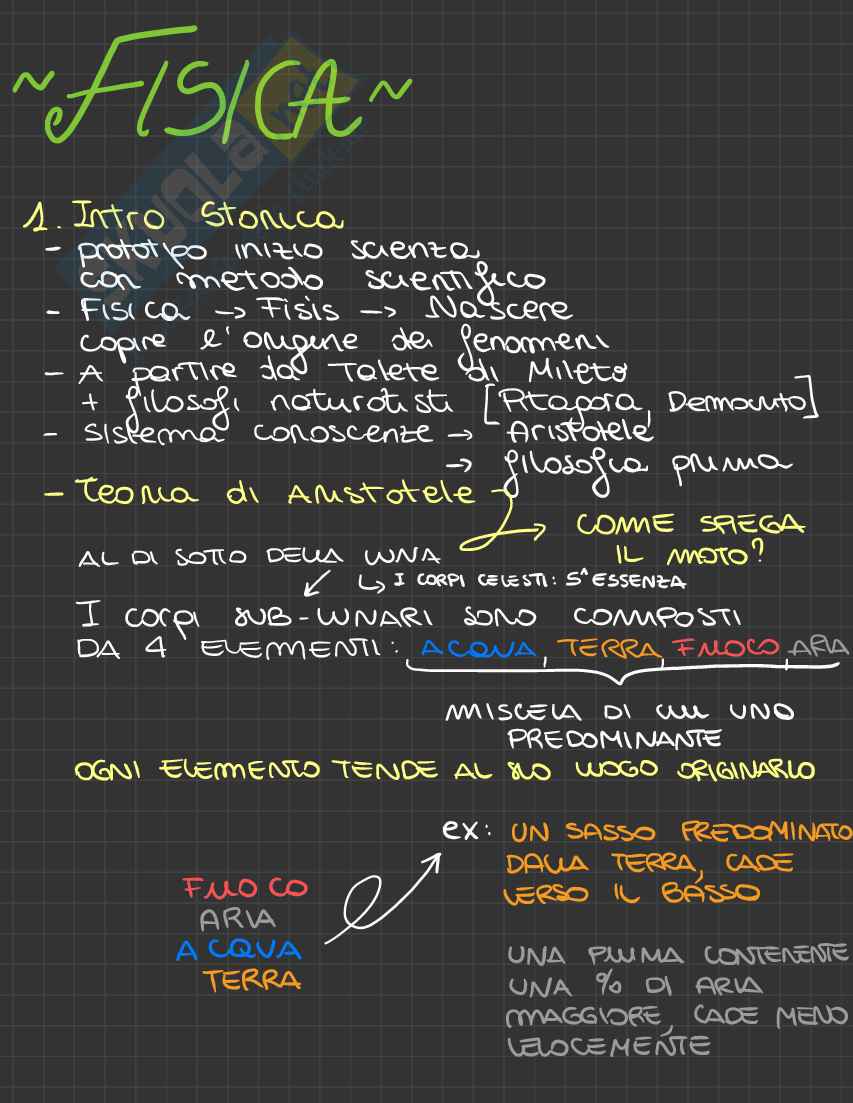 ~FISICA~
SKUOLA.net
1. Intro Storica
- prototipo inizio scienza
con metodo scientifico
- Fisica -> Fisis -> Nascere
capire l'origine dei fenomeni
- A partire da Talete di Mileto
+ filosofi naturalisti [Pitagora, Democrito]
- Sistema conoscenze -> Aristotele
-> filosofia prima
- Teoria di Aristotele
COME SPIEGA
IL MOTO?
AL DI SOTTO DELLA LUNA
I CORPI CELESTI: 5^ ESSENZA
I corpi SUB-LUNARI SONO COMPOSTI
DA 4 ELEMENTI: ACQUA, TERRA, FUOCO, ARIA
MISCELA DI CUI UNO
PREDOMINANTE
OGNI ELEMENTO TENDE AL SUO LUOGO ORIGINARIO
ex: UN SASSO PREDOMINATO
DALLA TERRA, CADE
VERSO IL BASSO
FUOCO
ARIA
ACQUA
TERRA
UNA PIUMA CONTENENTE
UNA % DI ARIA
MAGGIORE, CADE MENO
VELOCEMENTE